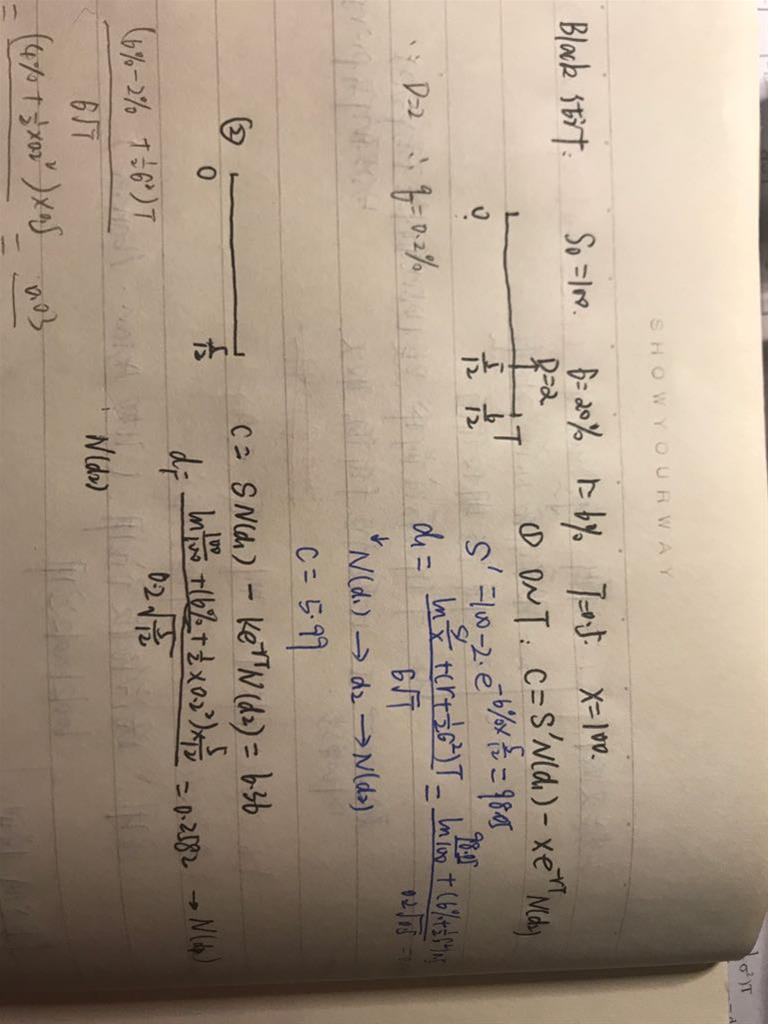 SHOWYOURWAY
Black start: S0 = 100. σ = 20% r = 6% T = 0.5. X = 100.
D=2
0 5/12 6/12 T
① On T: C = S'N(d1) - Xe^-rT N(d2)
S' = 100 - 2·e^-6%×5/12 = 98.05
∵ D=2 ∴ q = 0.2%
d1 = (ln S'/X + (r+½σ²)T) / σ√T = (ln 98.05/100 + (6%+½
0.2√0.5
N(d1) → d2 → N(d2)
C = 5.99
② 0 5/12
C = SN(d1) - Ke^-rT N(d2) = 6.36
d1 = (ln 100/100 + (6% + ½×0.2²)×5/12) / 0.2√5/12 = 0.2582 → N(d1)
N(d2)
(6% - 2% + ½σ²)T
σ√T
= (4% + ½×0.2²)×0.5 =
σ²)T